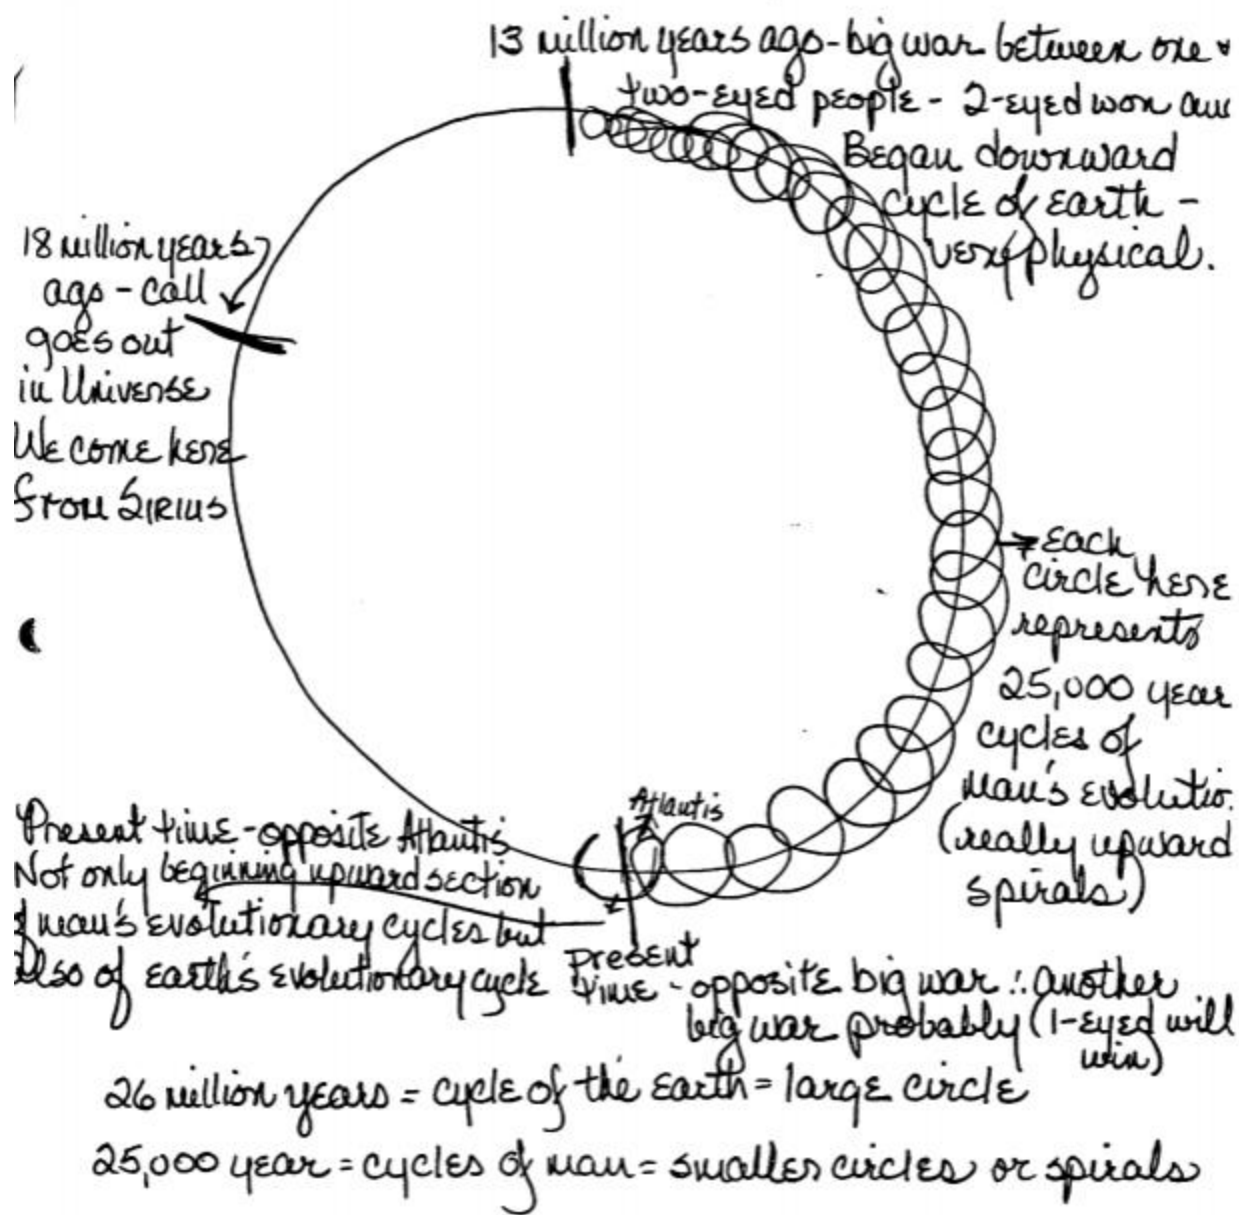 13 million years ago - big war between one &
two-eyed people - 2-eyed won
Began downward
cycle of earth -
very physical.
18 million years
ago - call
goes out
in Universe
We come here
from Sirius
Each
circle here
represents
25,000 year
cycles of
man's evolutio.
(really upward
spirals)
Atlantis
Present time - opposite Atlantis
Not only beginning upward section
of man's evolutionary cycles but
also of earth's evolutionary cycle
present
time - opposite big war ∴ another
big war probably (1-eyed will
win)
26 million years = cycle of the earth = large circle
25,000 year = cycles of man = smaller circles or spirals